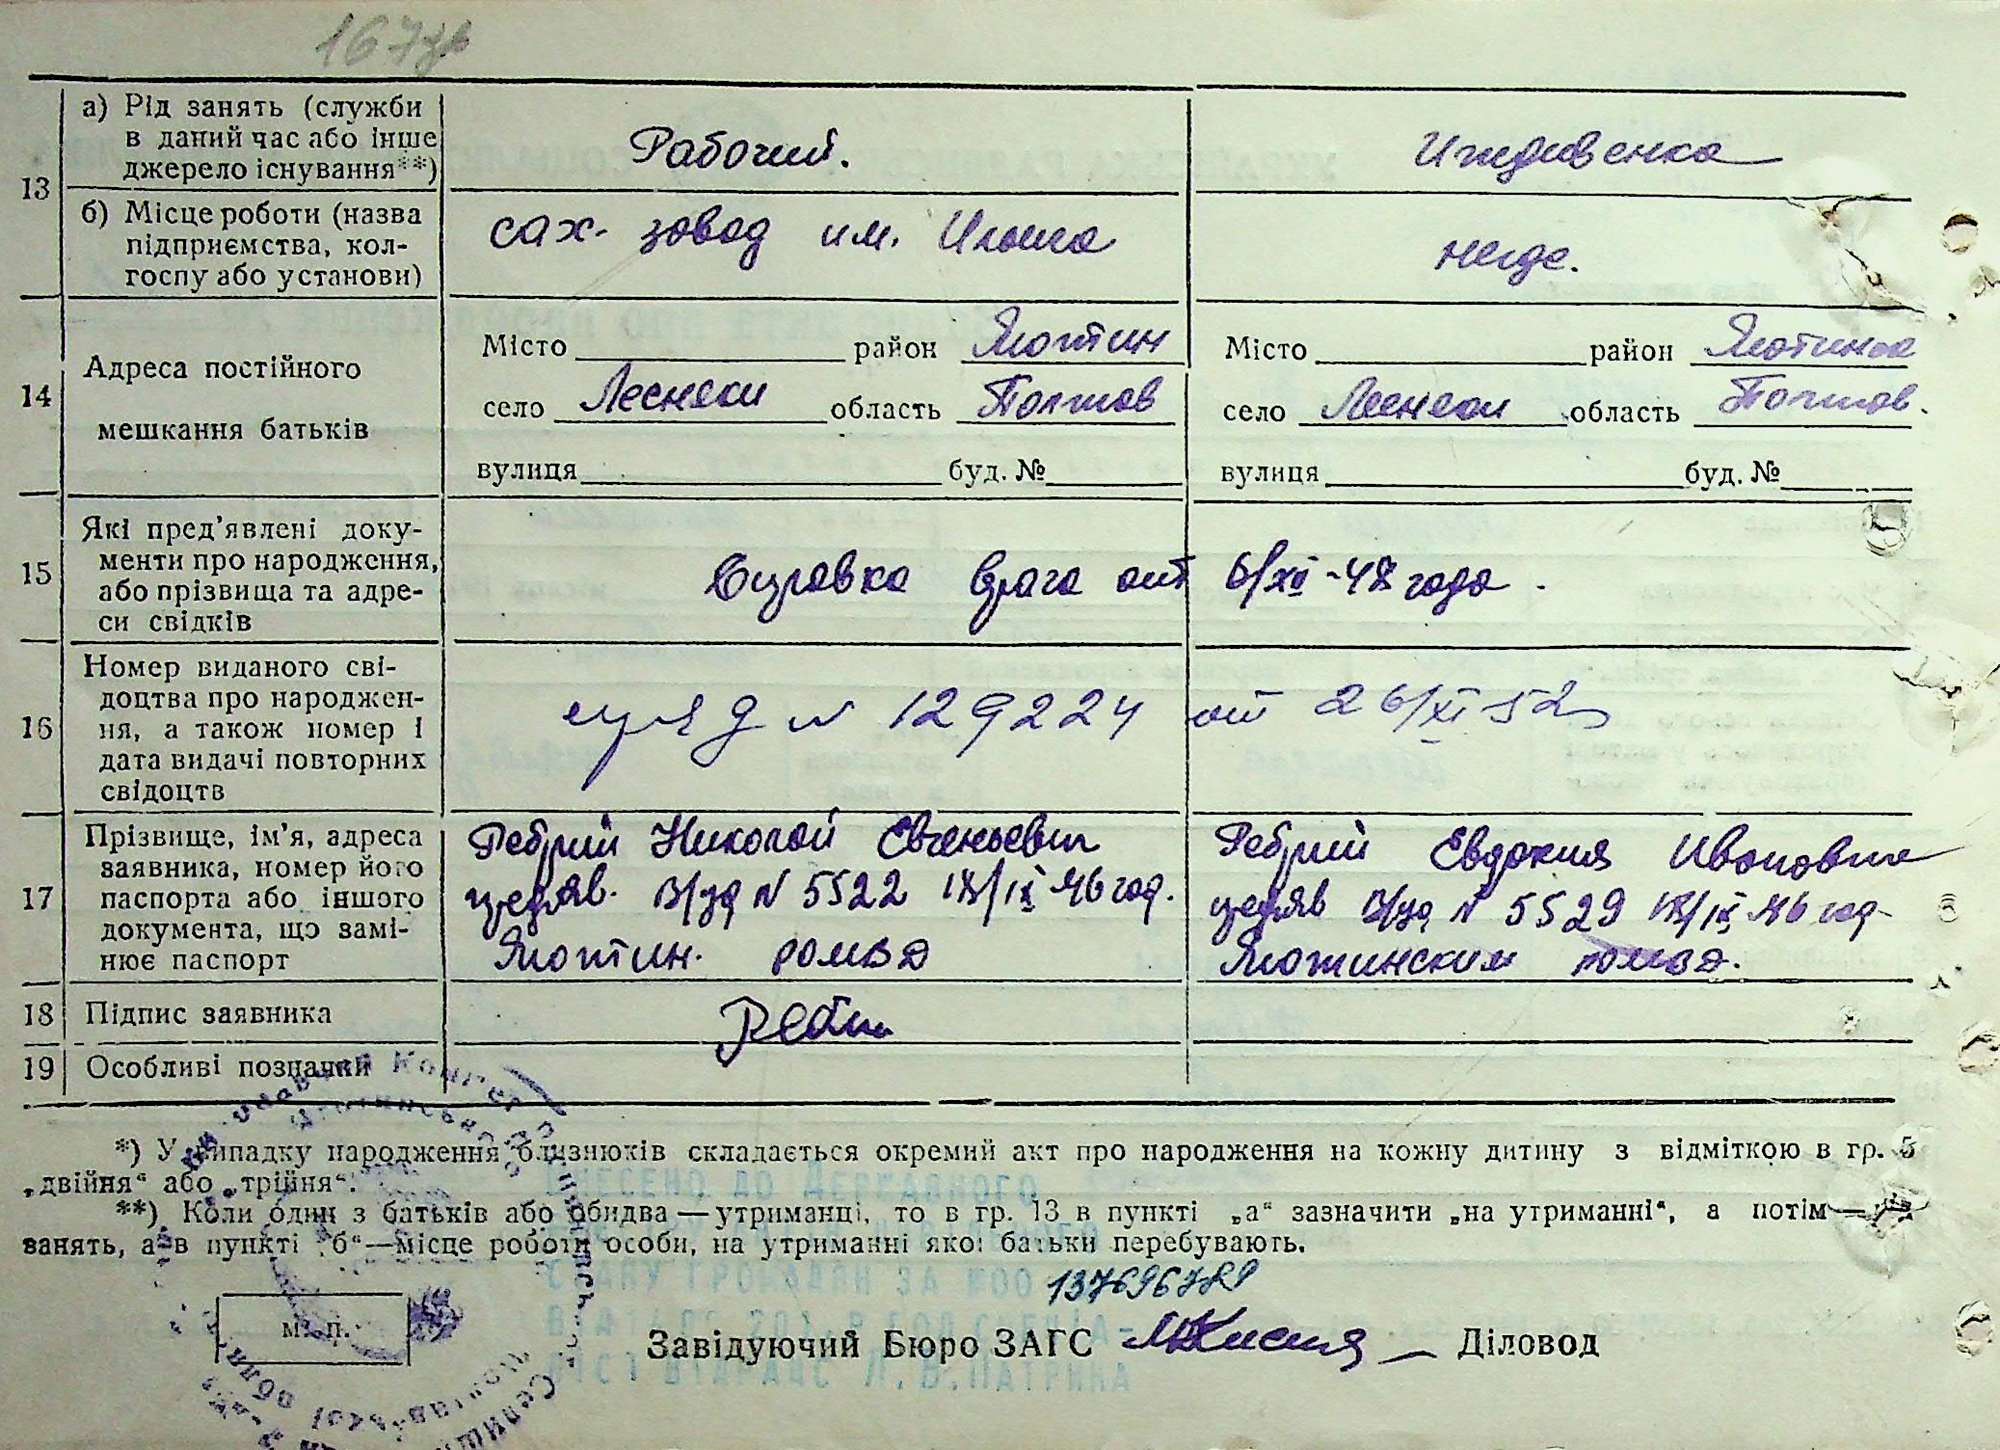 167
13
а) Рід занять (служби в даний час або інше джерело існування**)
Рабочий.
Иждивенка
б) Місце роботи (назва підприємства, колгоспу або установи)
сах. завод им. Ильича
негде.
14
Адреса постійного мешкання батьків
Місто район Яготин
село Лесняки область Полтав
вулиця буд. №
Місто район
село Лесняки область Полтав.
вулиця буд. №
15
Які пред'явлені документи про народження, або прізвища та адреси свідків
Справка врача от 6/XII-48 года.
16
Номер виданого свідоцтва про народження, а також номер і дата видачі повторних свідоцтв
N 129224 от 26/XI 52
17
Прізвище, ім'я, адреса заявника, номер його паспорта або іншого документа, що замінює паспорт
Ребрий Николай Евгеньевич
N 5522 18/IX 46 год.
Яготин.
Ребрий Евдокия Ивановна
N 5529 18/IX 46 год
Яготинским
18
Підпис заявника
19
Особливі позначки
*) У випадку народження близнюків складається окремий акт про народження на кожну дитину з відміткою в гр. 5
„двійня“ або „трійня“.
**) Коли один з батьків або обидва — утриманці, то в гр. 13 в пункті „а“ зазначити „на утриманні“, а потім —
занять, а в пункті „б“—місце роботи особи, на утриманні якої батьки перебувають.
ВНЕСЕНО ДО ДЕРЖАВНОГО
СТАНУ ГРОМАДЯН ЗА №00
м. п.
Завідуючий Бюро ЗАГС
Діловод